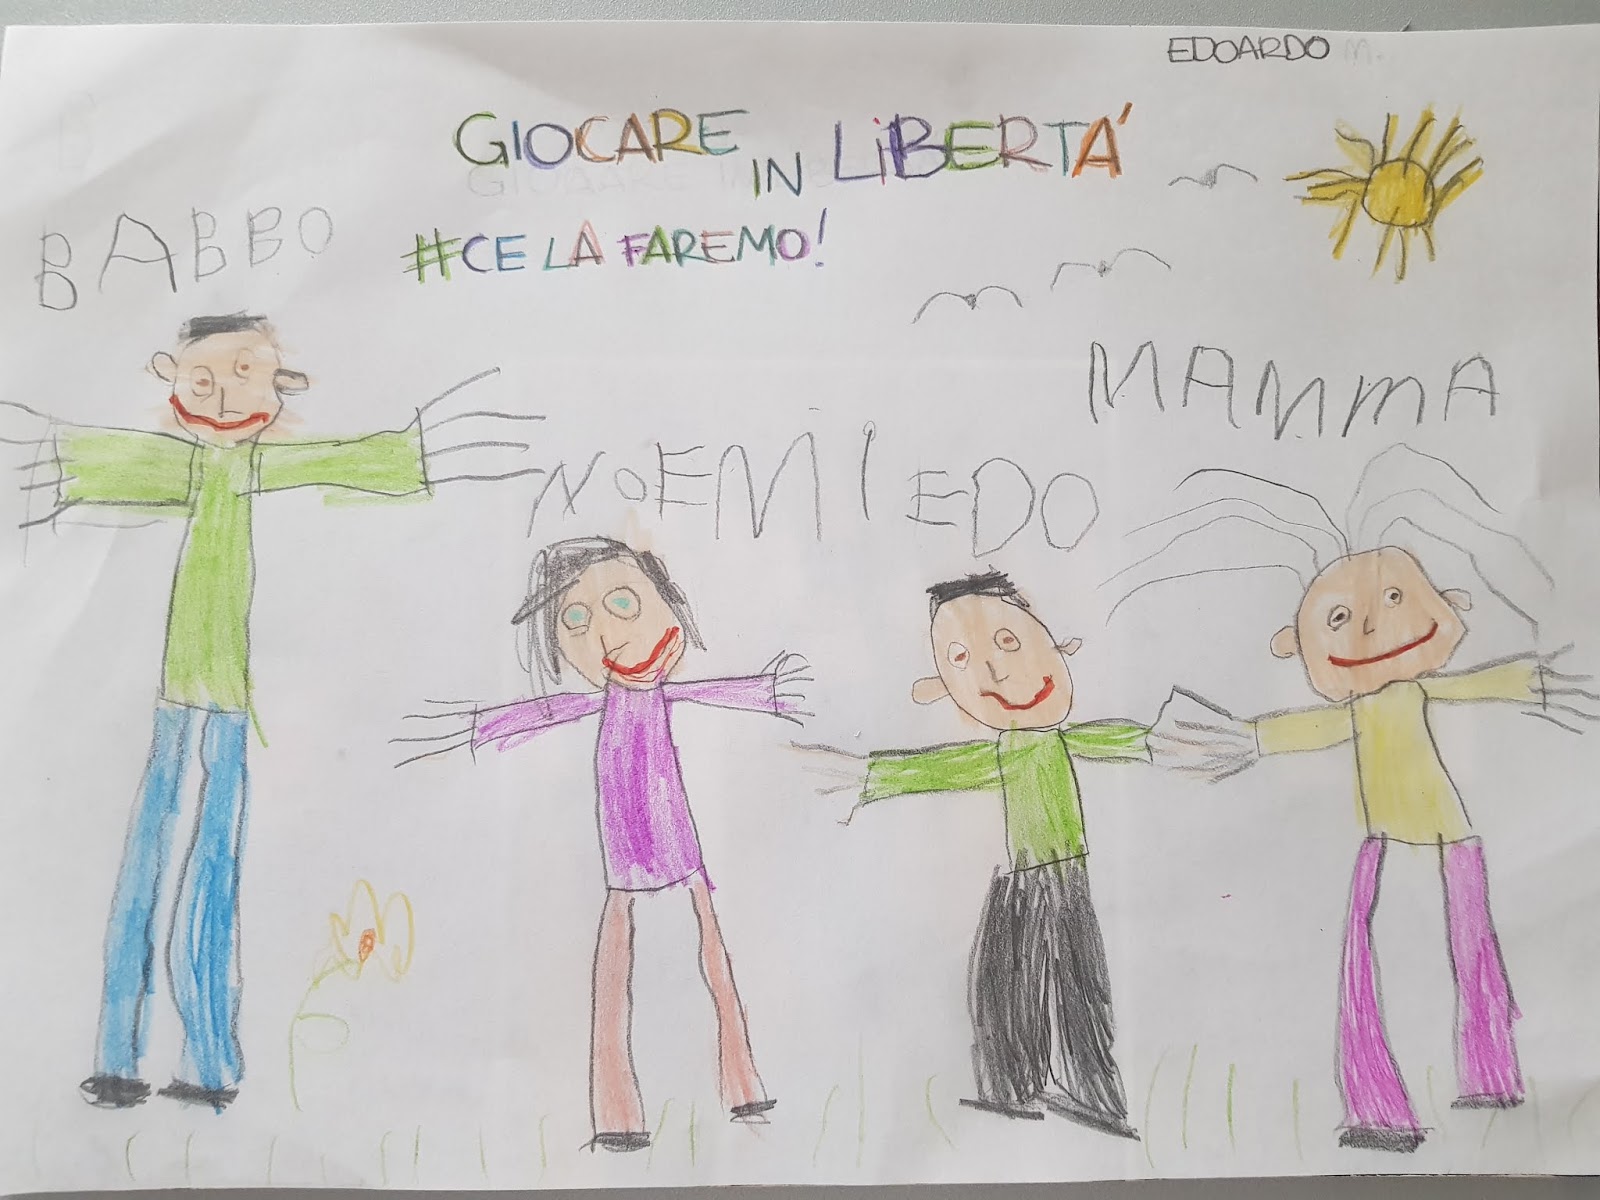 EDOARDO M.
GIOCARE IN LIBERTA'
#CE LA FAREMO!
BABBO
MAMMA
NOEMI EDO